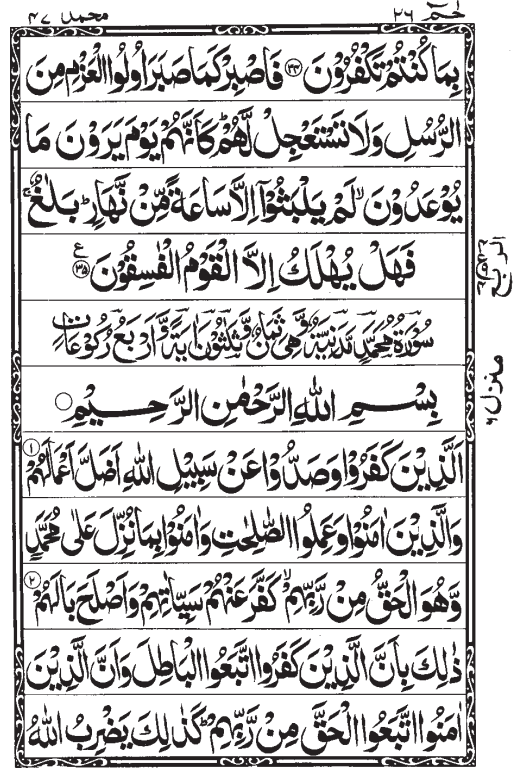 حٰمٓ ٢٦
محمد ٤٧
بِمَا كُنْتُمْ تَكْفُرُوْنَ ﴿٣٤﴾ فَاصْبِرْ كَمَا صَبَرَ اُولُوا الْعَزْمِ مِنَ
الرُّسُلِ وَلَا تَسْتَعْجِلْ لَّهُمْ ؕ كَاَنَّهُمْ يَوْمَ يَرَوْنَ مَا
يُوْعَدُوْنَ ۙ لَمْ يَلْبَثُوْۤا اِلَّا سَاعَةً مِّنْ نَّهَارٍ ؕ بَلٰغٌ ۚ
فَهَلْ يُهْلَكُ اِلَّا الْقَوْمُ الْفٰسِقُوْنَ ﴿٣٥﴾ ع
الربع
سُوْرَةُ مُحَمَّدٍ مَّدَنِيَّةٌ وَّهِيَ ثَمَانٌ وَّثَلٰثُوْنَ اٰيَةً وَّاَرْبَعُ رُكُوْعَاتٍ
منزل ٦
بِسْمِ اللّٰهِ الرَّحْمٰنِ الرَّحِيْمِ
اَلَّذِيْنَ كَفَرُوْا وَصَدُّوْا عَنْ سَبِيْلِ اللّٰهِ اَضَلَّ اَعْمَالَهُمْ ﴿١﴾
وَالَّذِيْنَ اٰمَنُوْا وَعَمِلُوا الصّٰلِحٰتِ وَاٰمَنُوْا بِمَا نُزِّلَ عَلٰى مُحَمَّدٍ
وَّهُوَ الْحَقُّ مِنْ رَّبِّهِمْ ۙ كَفَّرَ عَنْهُمْ سَيِّاٰتِهِمْ وَاَصْلَحَ بَالَهُمْ ﴿٢﴾
ذٰلِكَ بِاَنَّ الَّذِيْنَ كَفَرُوا اتَّبَعُوا الْبَاطِلَ وَاَنَّ الَّذِيْنَ
اٰمَنُوا اتَّبَعُوا الْحَقَّ مِنْ رَّبِّهِمْ ؕ كَذٰلِكَ يَضْرِبُ اللّٰهُ